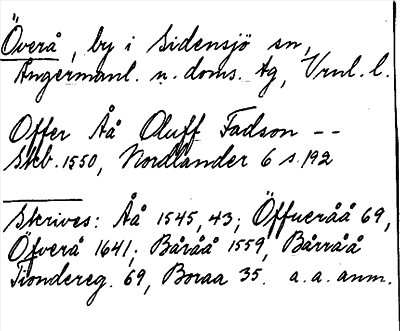 Överå, by i Sidensjö sn,
Ångermanl. n. doms. tg, Vrnl. l.
Offer Åå Oluff Fadson --
Skb. 1550, Nordlander 6 s. 192
Skrives: Åå 1545, 43; Öffueråå 69,
Öfverå 1641; Båråå 1559, Bårråå
Tiondereg. 69, Boraa 35. a. a. anm.